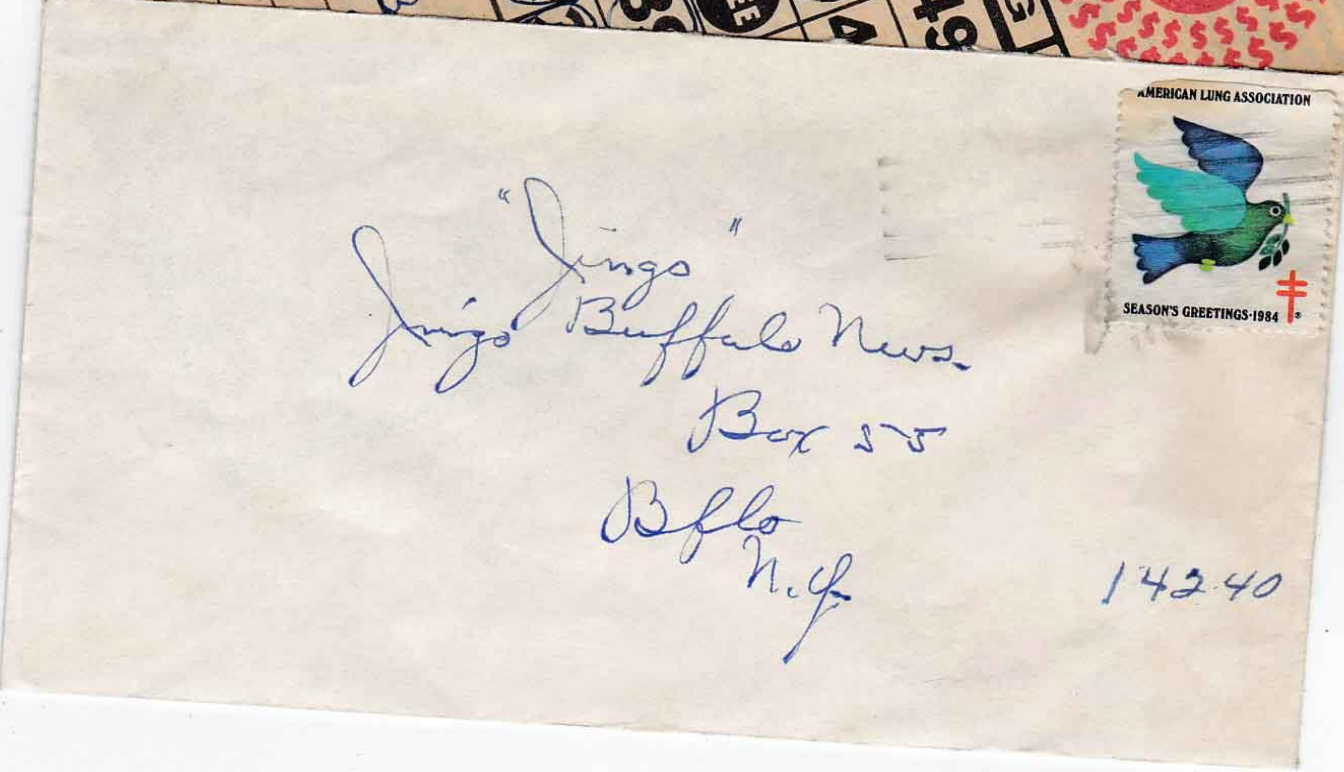 FREE
4
49
G
$ $ $ $ $ $
AMERICAN LUNG ASSOCIATION
SEASON'S GREETINGS·1984 ®
"Jingo"
Jingo Buffalo News.
Box 55
Bflo
N.Y.
14240